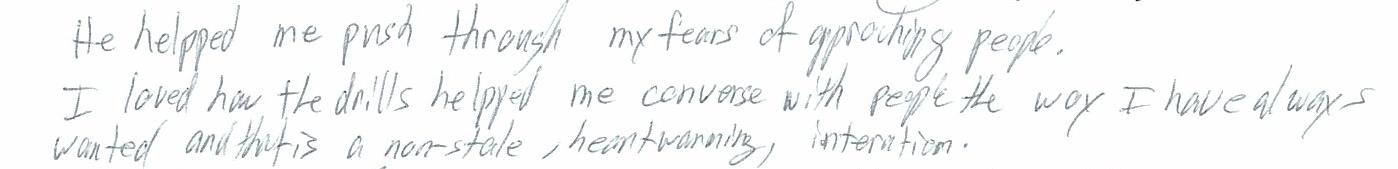 He helpped me push through my fears of approching people.
I loved how the drills helpped me converse with people the way I have always
wanted and that is a non-stale, heartwarming, interation.